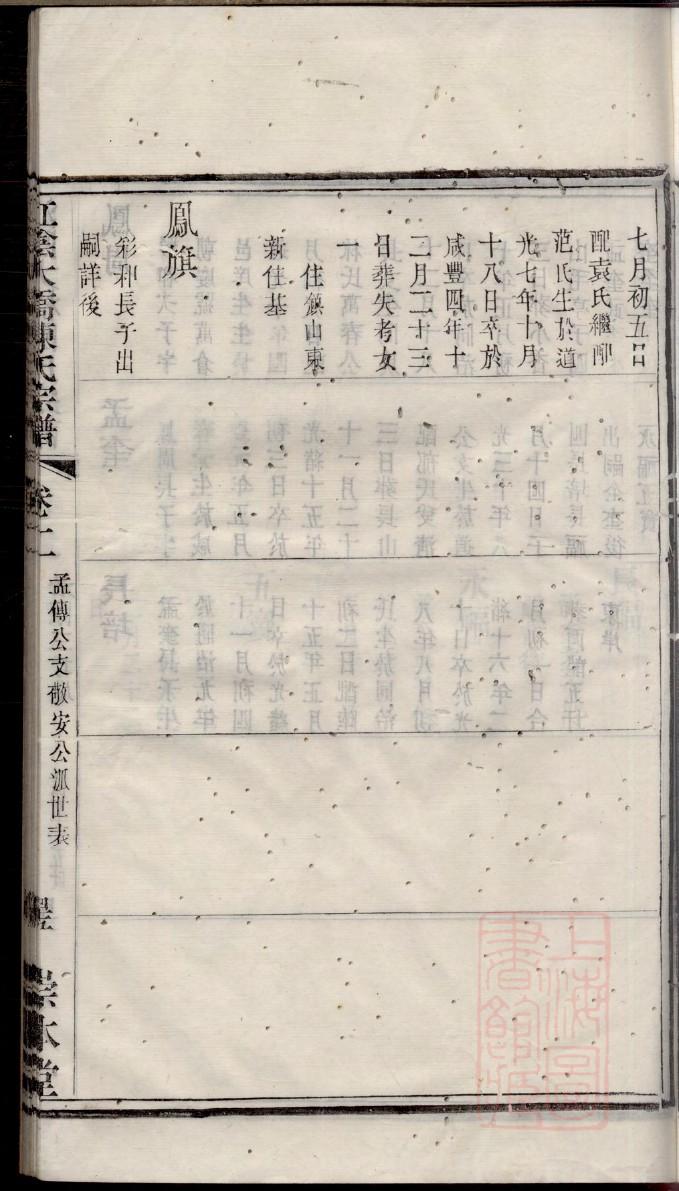 七月初五日
配袁氏繼配
范氏生於道
光七年十月
十八日卒於
咸豐四年十
二月二十三
日葬失考女
一
住鎮山東
新住基
鳳旗
彩和長子出
嗣詳後
江陰大橋陳氏宗譜
卷十二
孟傳公支敬安公派世表
宗本堂
上海圖書館藏